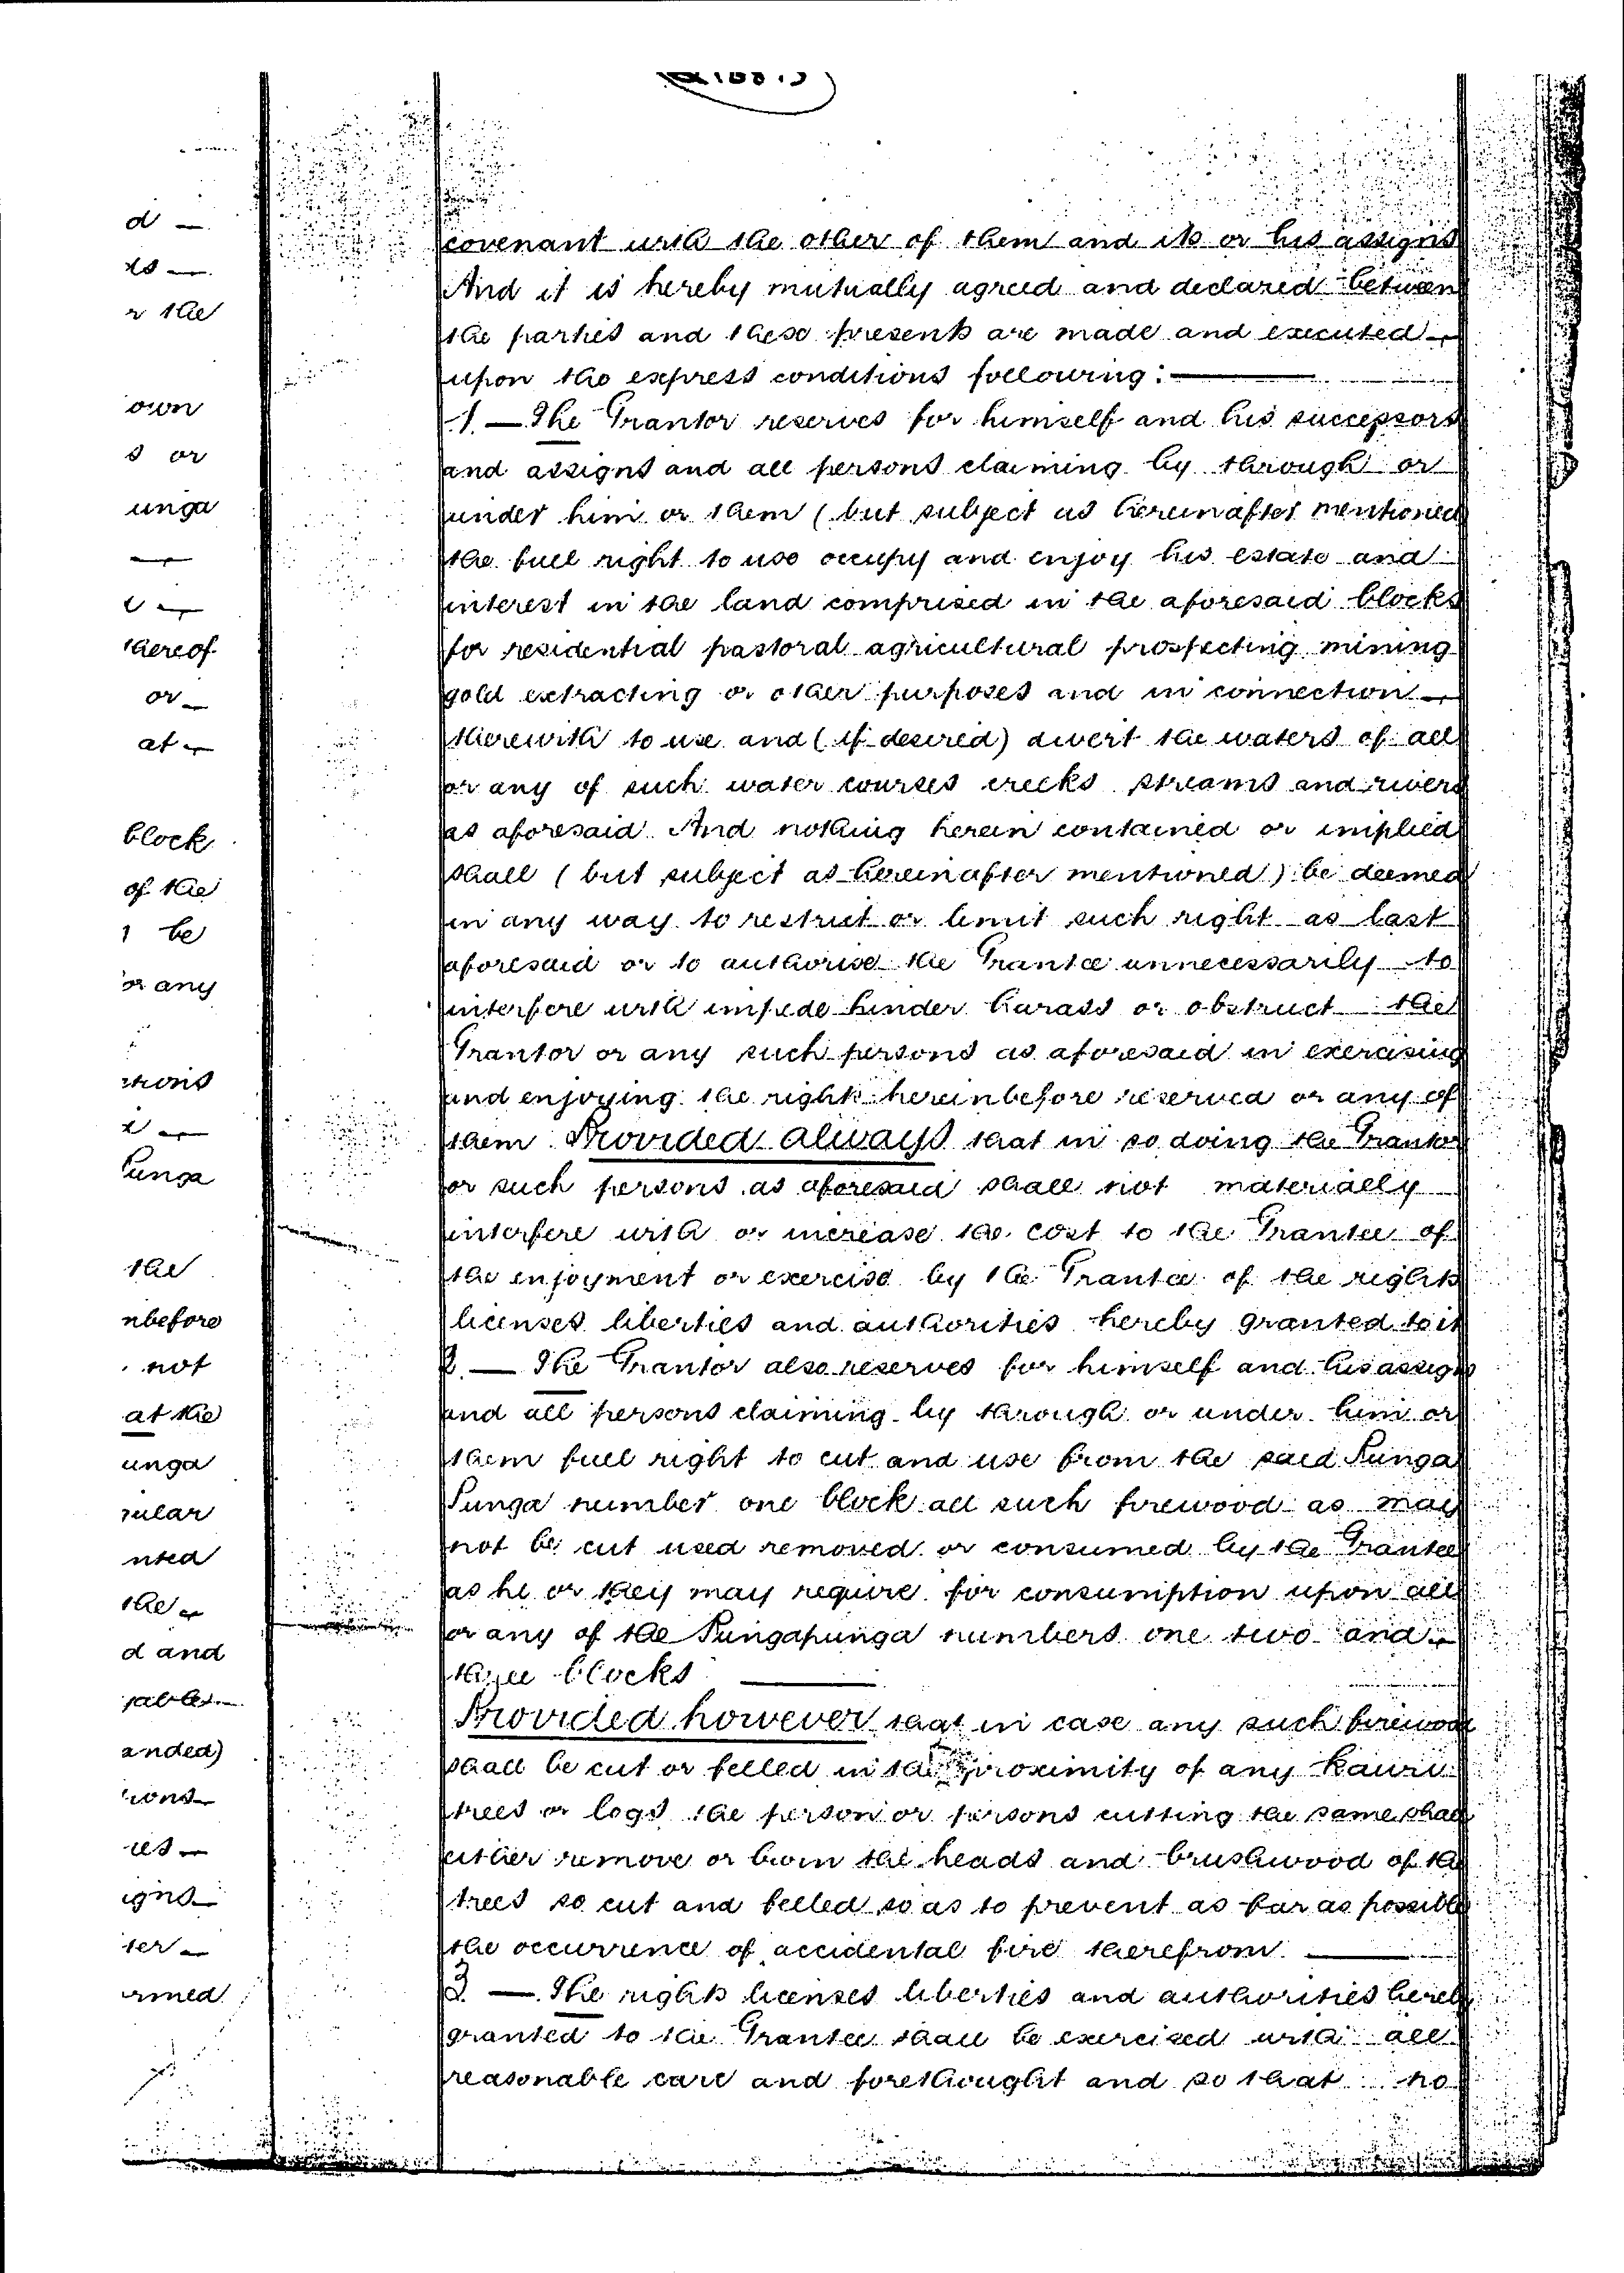 d —
ts —
r the
own
s or
unga
—
e —
thereof
or —
at —
block
of the
be
or any
tions
e —
unga
the
nbefore
not
at the
unga
cular
nted
the —
d and
ables —
anded)
ions —
ies —
igns —
ter —
rmed
covenant with the other of them and its or his assigns
And it is hereby mutually agreed and declared between
the parties and these presents are made and executed —
upon the express conditions following: —
1. — The Grantor reserves for himself and his successors
and assigns and all persons claiming by through or
under him or them (but subject as hereinafter mentioned
the full right to use occupy and enjoy his estate and
interest in the land comprised in the aforesaid blocks
for residential pastoral agricultural prospecting mining
gold extracting or other purposes and in connection —
therewith to use and (if desired) divert the waters of all
or any of such water courses creeks streams and rivers
as aforesaid And nothing herein contained or implied
shall (but subject as hereinafter mentioned) be deemed
in any way to restrict or limit such right as last
aforesaid or to authorise the Grantee unnecessarily to
interfere with impede hinder harass or obstruct the
Grantor or any such persons as aforesaid in exercising
and enjoying the rights hereinbefore reserved or any of
them Provided always that in so doing the Grantor
or such persons as aforesaid shall not materially
interfere with or increase the cost to the Grantee of
the enjoyment or exercise by the Grantee of the rights
licenses liberties and authorities hereby granted to it
2. — The Grantor also reserves for himself and his assigns
and all persons claiming by through or under him or
them full right to cut and use from the said Punga
Punga number one block all such firewood as may
not be cut used removed or consumed by the Grantee
as he or they may require for consumption upon all
or any of the Pungapunga numbers one two and —
three blocks —
Provided however that in case any such firewood
shall be cut or felled in the proximity of any Kauri
trees or logs the person or persons cutting the same shall
either remove or burn the heads and brushwood of the
trees so cut and felled so as to prevent as far as possible
the occurrence of accidental fire therefrom. —
3. — The rights licenses liberties and authorities hereby
granted to the Grantee shall be exercised with all
reasonable care and forethought and so that no